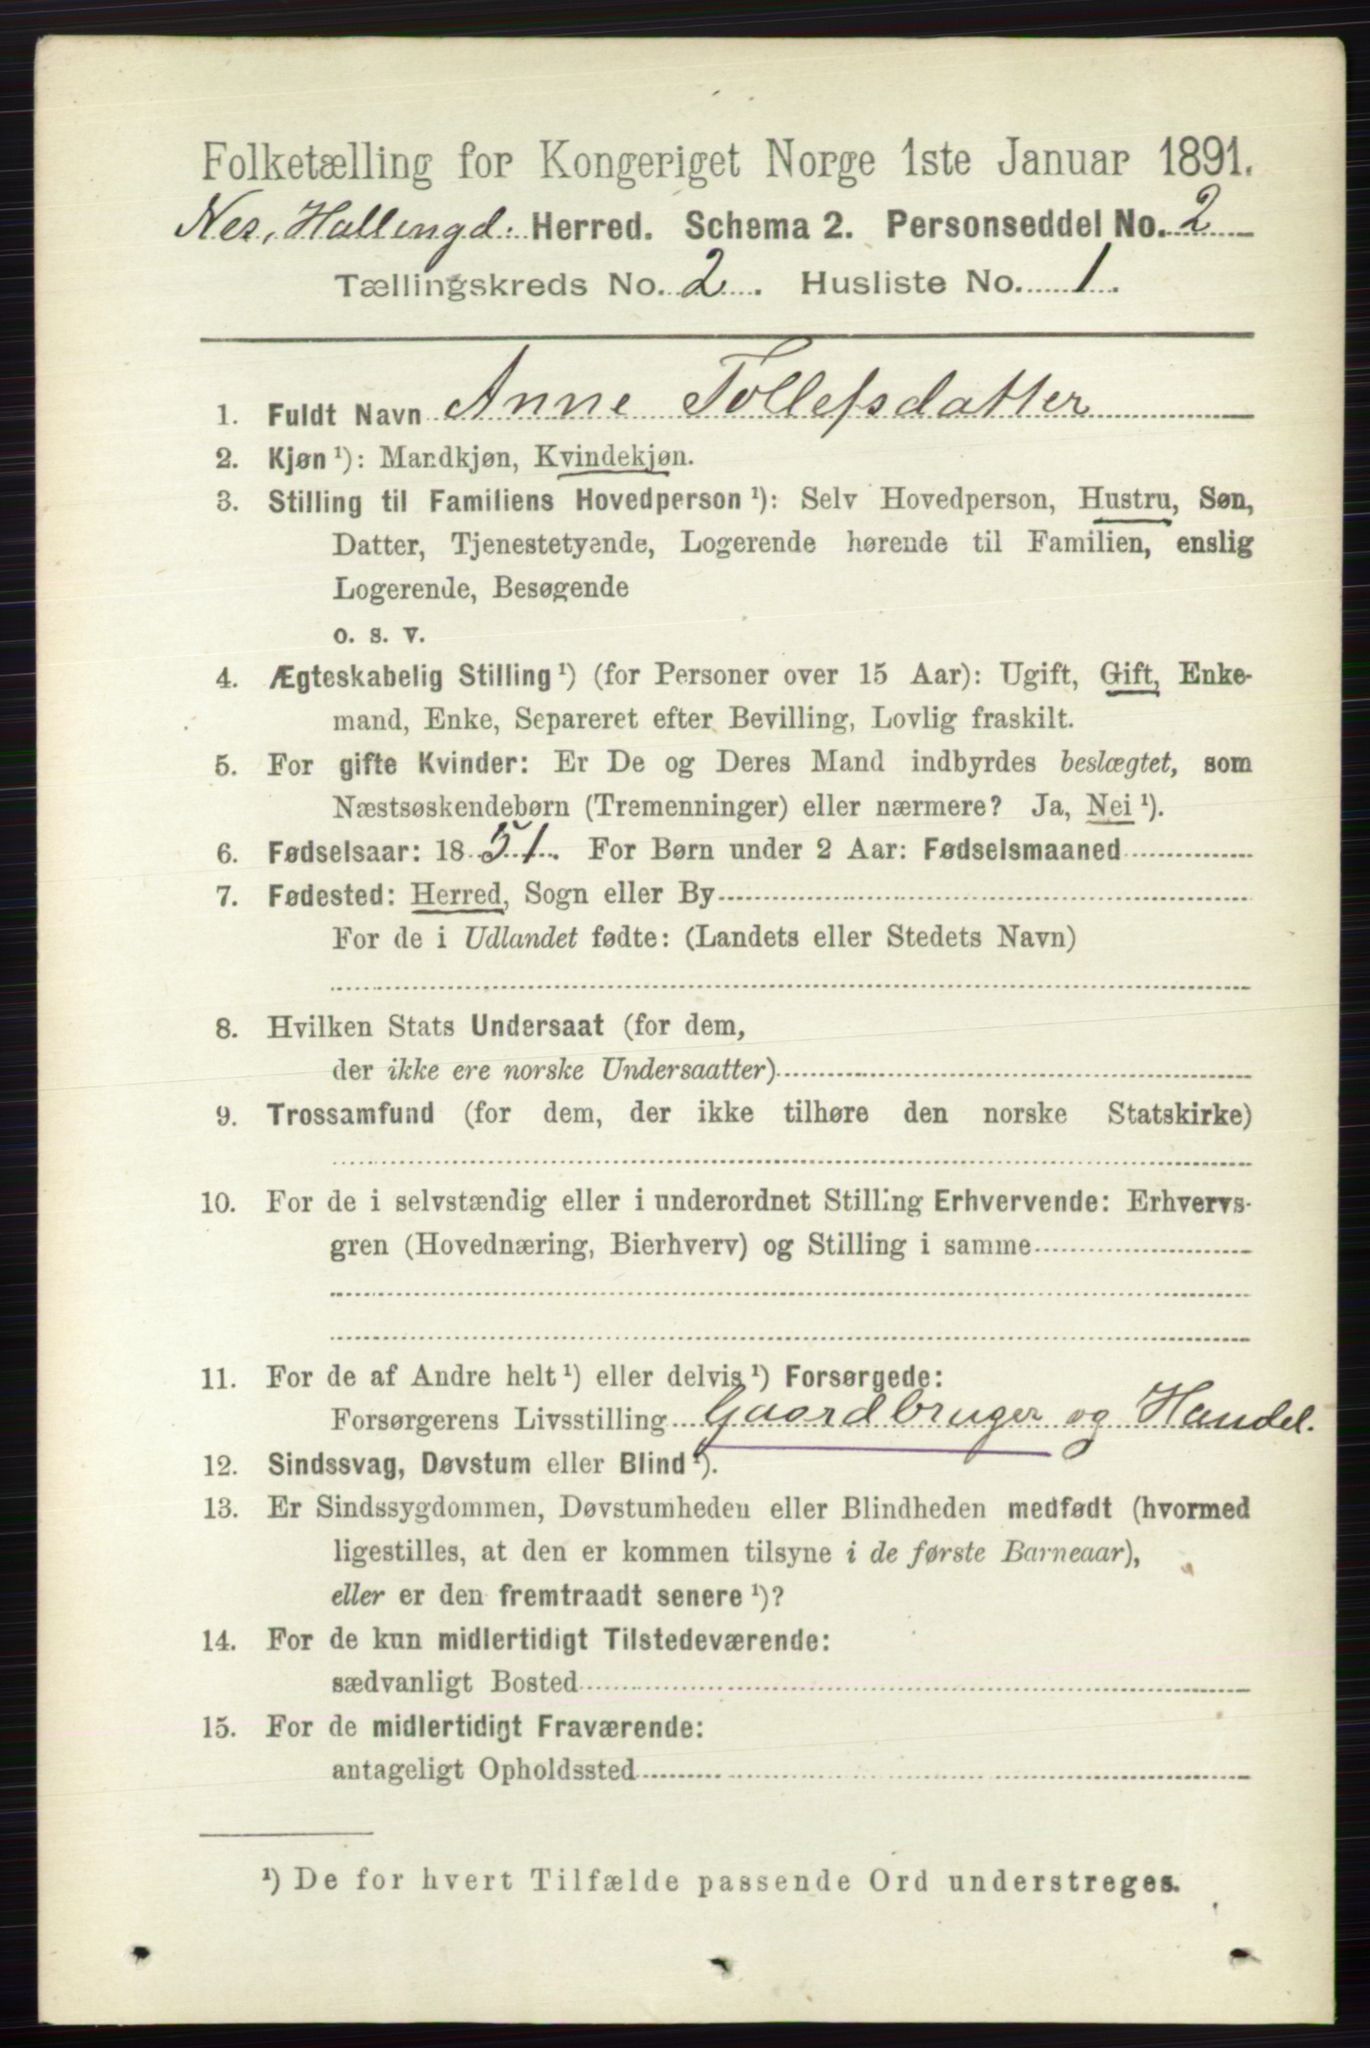 Folketælling for Kongeriget Norge 1ste Januar 1891.
Nes, Hallingd. Herred. Schema 2. Personseddel No. 2
Tællingskreds No. 2. Husliste No. 1.
1. Fuldt Navn Anne Tollefsdatter
2. Kjøn ¹): Mandkjøn, Kvindekjøn.
3. Stilling til Familiens Hovedperson ¹): Selv Hovedperson, Hustru, Søn,
Datter, Tjenestetyende, Logerende hørende til Familien, enslig
Logerende, Besøgende
o. s. v.
4. Ægteskabelig Stilling ¹) (for Personer over 15 Aar): Ugift, Gift, Enke-
mand, Enke, Separeret efter Bevilling, Lovlig fraskilt.
5. For gifte Kvinder: Er De og Deres Mand indbyrdes beslægtet, som
Næstsøskendebørn (Tremenninger) eller nærmere? Ja, Nei ¹).
6. Fødselsaar: 1851. For Børn under 2 Aar: Fødselsmaaned
7. Fødested: Herred, Sogn eller By
For de i Udlandet fødte: (Landets eller Stedets Navn)
8. Hvilken Stats Undersaat (for dem,
der ikke ere norske Undersaatter)
9. Trossamfund (for dem, der ikke tilhøre den norske Statskirke)
10. For de i selvstændig eller i underordnet Stilling Erhvervende: Erhvervs-
gren (Hovednæring, Bierhverv) og Stilling i samme
11. For de af Andre helt ¹) eller delvis ¹) Forsørgede:
Forsørgerens Livsstilling Gaardbruger og Handel.
12. Sindssvag, Døvstum eller Blind ¹).
13. Er Sindssygdommen, Døvstumheden eller Blindheden medfødt (hvormed
ligestilles, at den er kommen tilsyne i de første Barneaar),
eller er den fremtraadt senere ¹)?
14. For de kun midlertidigt Tilstedeværende:
sædvanligt Bosted
15. For de midlertidigt Fraværende:
antageligt Opholdssted
¹) De for hvert Tilfælde passende Ord understreges.